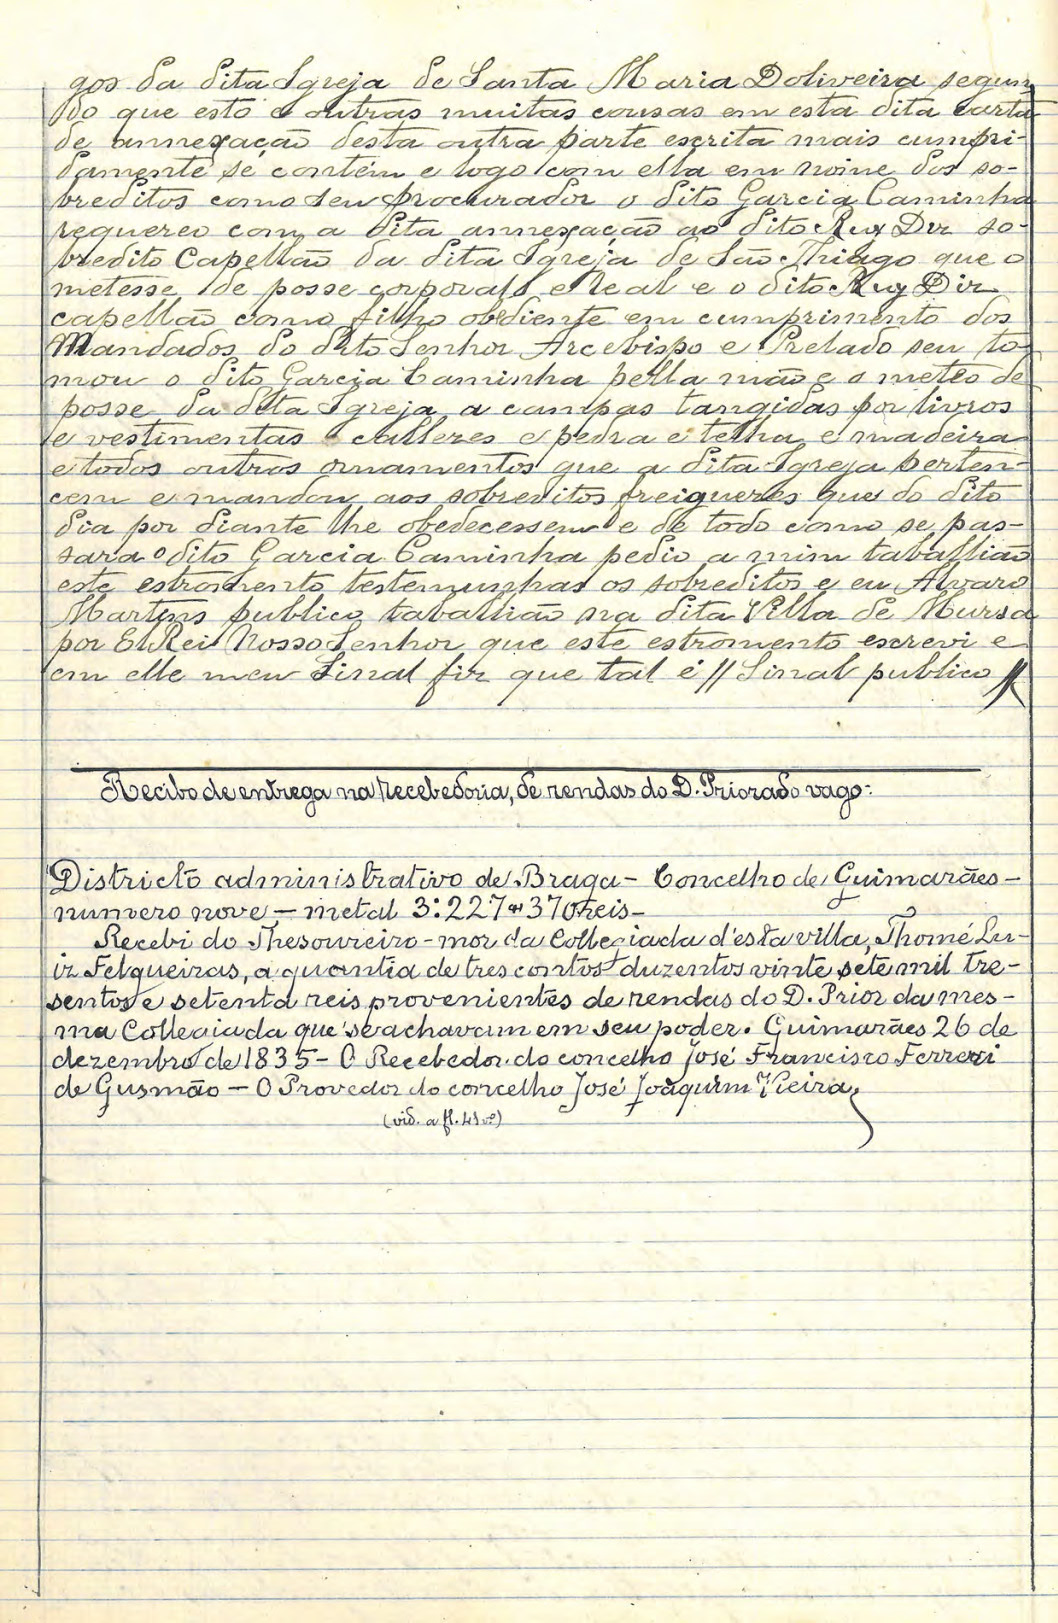 gos da dita Igreja de Santa Maria Doliveira segun
do que esto e outras muitas cousas em esta dita carta
de annexação desta outra parte escrita mais cumpri-
damente se contem e logo com ella em nome dos so-
breditos como seu procurador o dito Garcia Caminha
requereo com a dita annexação ao dito Ruy Diz so-
bredito Capellão da dita Igreja de São Thiago que o
metesse de posse corporal e Real e o dito Ruy Diz
capellão como filho obdiente em cumprimento dos
Mandados do dito Senhor Arcebispo e Prelado seu to-
mou o dito Garcia Caminha pella mão e o meteo de
posse da dita Igreja a campas tangidas por livros
e vestimentas callezes e pedra e telha e madeira
e todos outros ornamentos que a dita Igreja perten-
cem e mandou aos sobreditos freiguezes que do dito
dia por diante lhe obedecessem e de todo como se pas-
sara o dito Garcia Caminha pedio a mim taballião
este estromento testemunhas os sobreditos e eu Alvaro
Martins publico taballião na dita Villa de Mursa
por El Rei Nosso Senhor que este estromento escrevi e
em elle meu Sinal fiz que tal é // Sinal publico //
Recibo de entrega na recebedoria, de rendas do D. Priorado vago:
Districto administrativo de Braga - Concelho de Guimarães -
numero nove - metal 3:227#370 reis -
Recebi do Thesoureiro-mor da Collegiada d'esta villa, Thomé Lu-
iz Felgueiras, a quantia de tres contos duzentos vinte sete mil tre-
sentos e setenta reis provenientes de rendas do D. Prior da mes-
ma Collegiada que se achavam em seu poder. Guimarães 26 de
dezembro de 1835 - O Recebedor do concelho José Francisco Ferreri
de Gusmão - O Provedor do concelho José Joaquim Vieira
(vid. a fl. 41 vº)